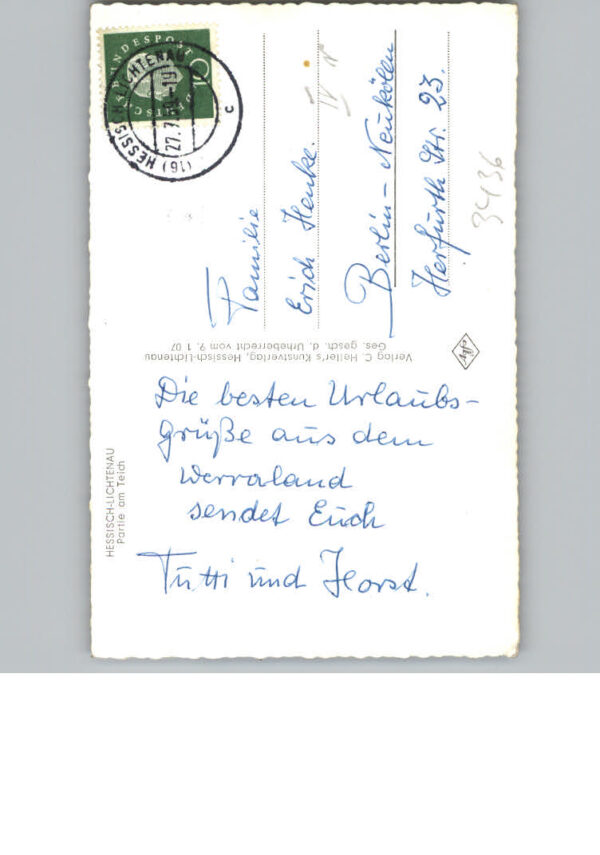 Die besten Urlaubs-
grüße aus dem
Werraland
sendet Euch
Tutti und Horst.
Familie
Erich Henke.
Berlin-Neukölln
Herfurth Str. 23.
IV
3436
HESSISCH-LICHTENAU
Partie am Teich
Verlag C. Heller's Kunstverlag, Hessisch-Lichtenau
Ges. gesch. d. Urheberrecht vom 9. 1. 07
DEUTSCHE BUNDESPOST
10
(16) HESSISCH LICHTENAU
c